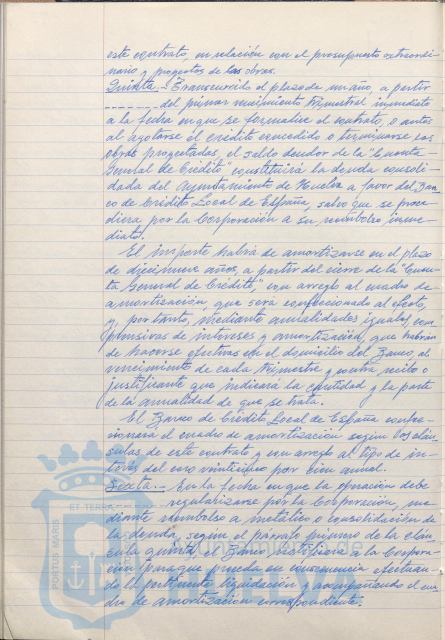 este contrato, en relación con el presupuesto extraordi-
nario y proyectos de las obras.
Quinta.- Transcurrido el plazo de un año, a partir
del primer vencimiento trimestral inmediato
a la fecha en que se formalice el contrato, o antes
al agotarse el crédito concedido o terminarse las
obras proyectadas, el saldo deudor de la "Cuenta
General de Crédito" constituirá la deuda consoli-
dada del Ayuntamiento de Huelva a favor del Ban-
co de Crédito Local de España, salvo que se proce-
diera por la Corporación a su reembolso inme-
diato.
El importe habrá de amortizarse en el plazo
de diecinueve años, a partir del cierre de la "Cuen-
ta General de Crédito", con arreglo al cuadro de
amortización, que será confeccionado al efecto,
y, por tanto, mediante anualidades iguales, com-
prensivas de intereses y amortización, que habrán
de hacerse efectivas en el domicilio del Banco, al
vencimiento de cada trimestre y contra recibo o
justificante que indicará la cantidad y la parte
de la anualidad de que se trata.
El Banco de Crédito Local de España confec-
cionará el cuadro de amortización según las cláu-
sulas de este contrato y con arreglo al tipo de in-
terés del cinco veinticinco por cien anual.
Sexta.- En la fecha en que la operación debe
regularizarse por la Corporación, me-
diante reembolso a metálico o consolidación de
la deuda, según el párrafo primero de la cláu-
sula quinta, el Banco notificará a la Corpora-
ción para que proceda en consecuencia efectuan-
do la pertinente liquidación y acompañando el cua-
dro de amortización correspondiente.
PORTUS MARIS
ET TERRAE
HUELVA